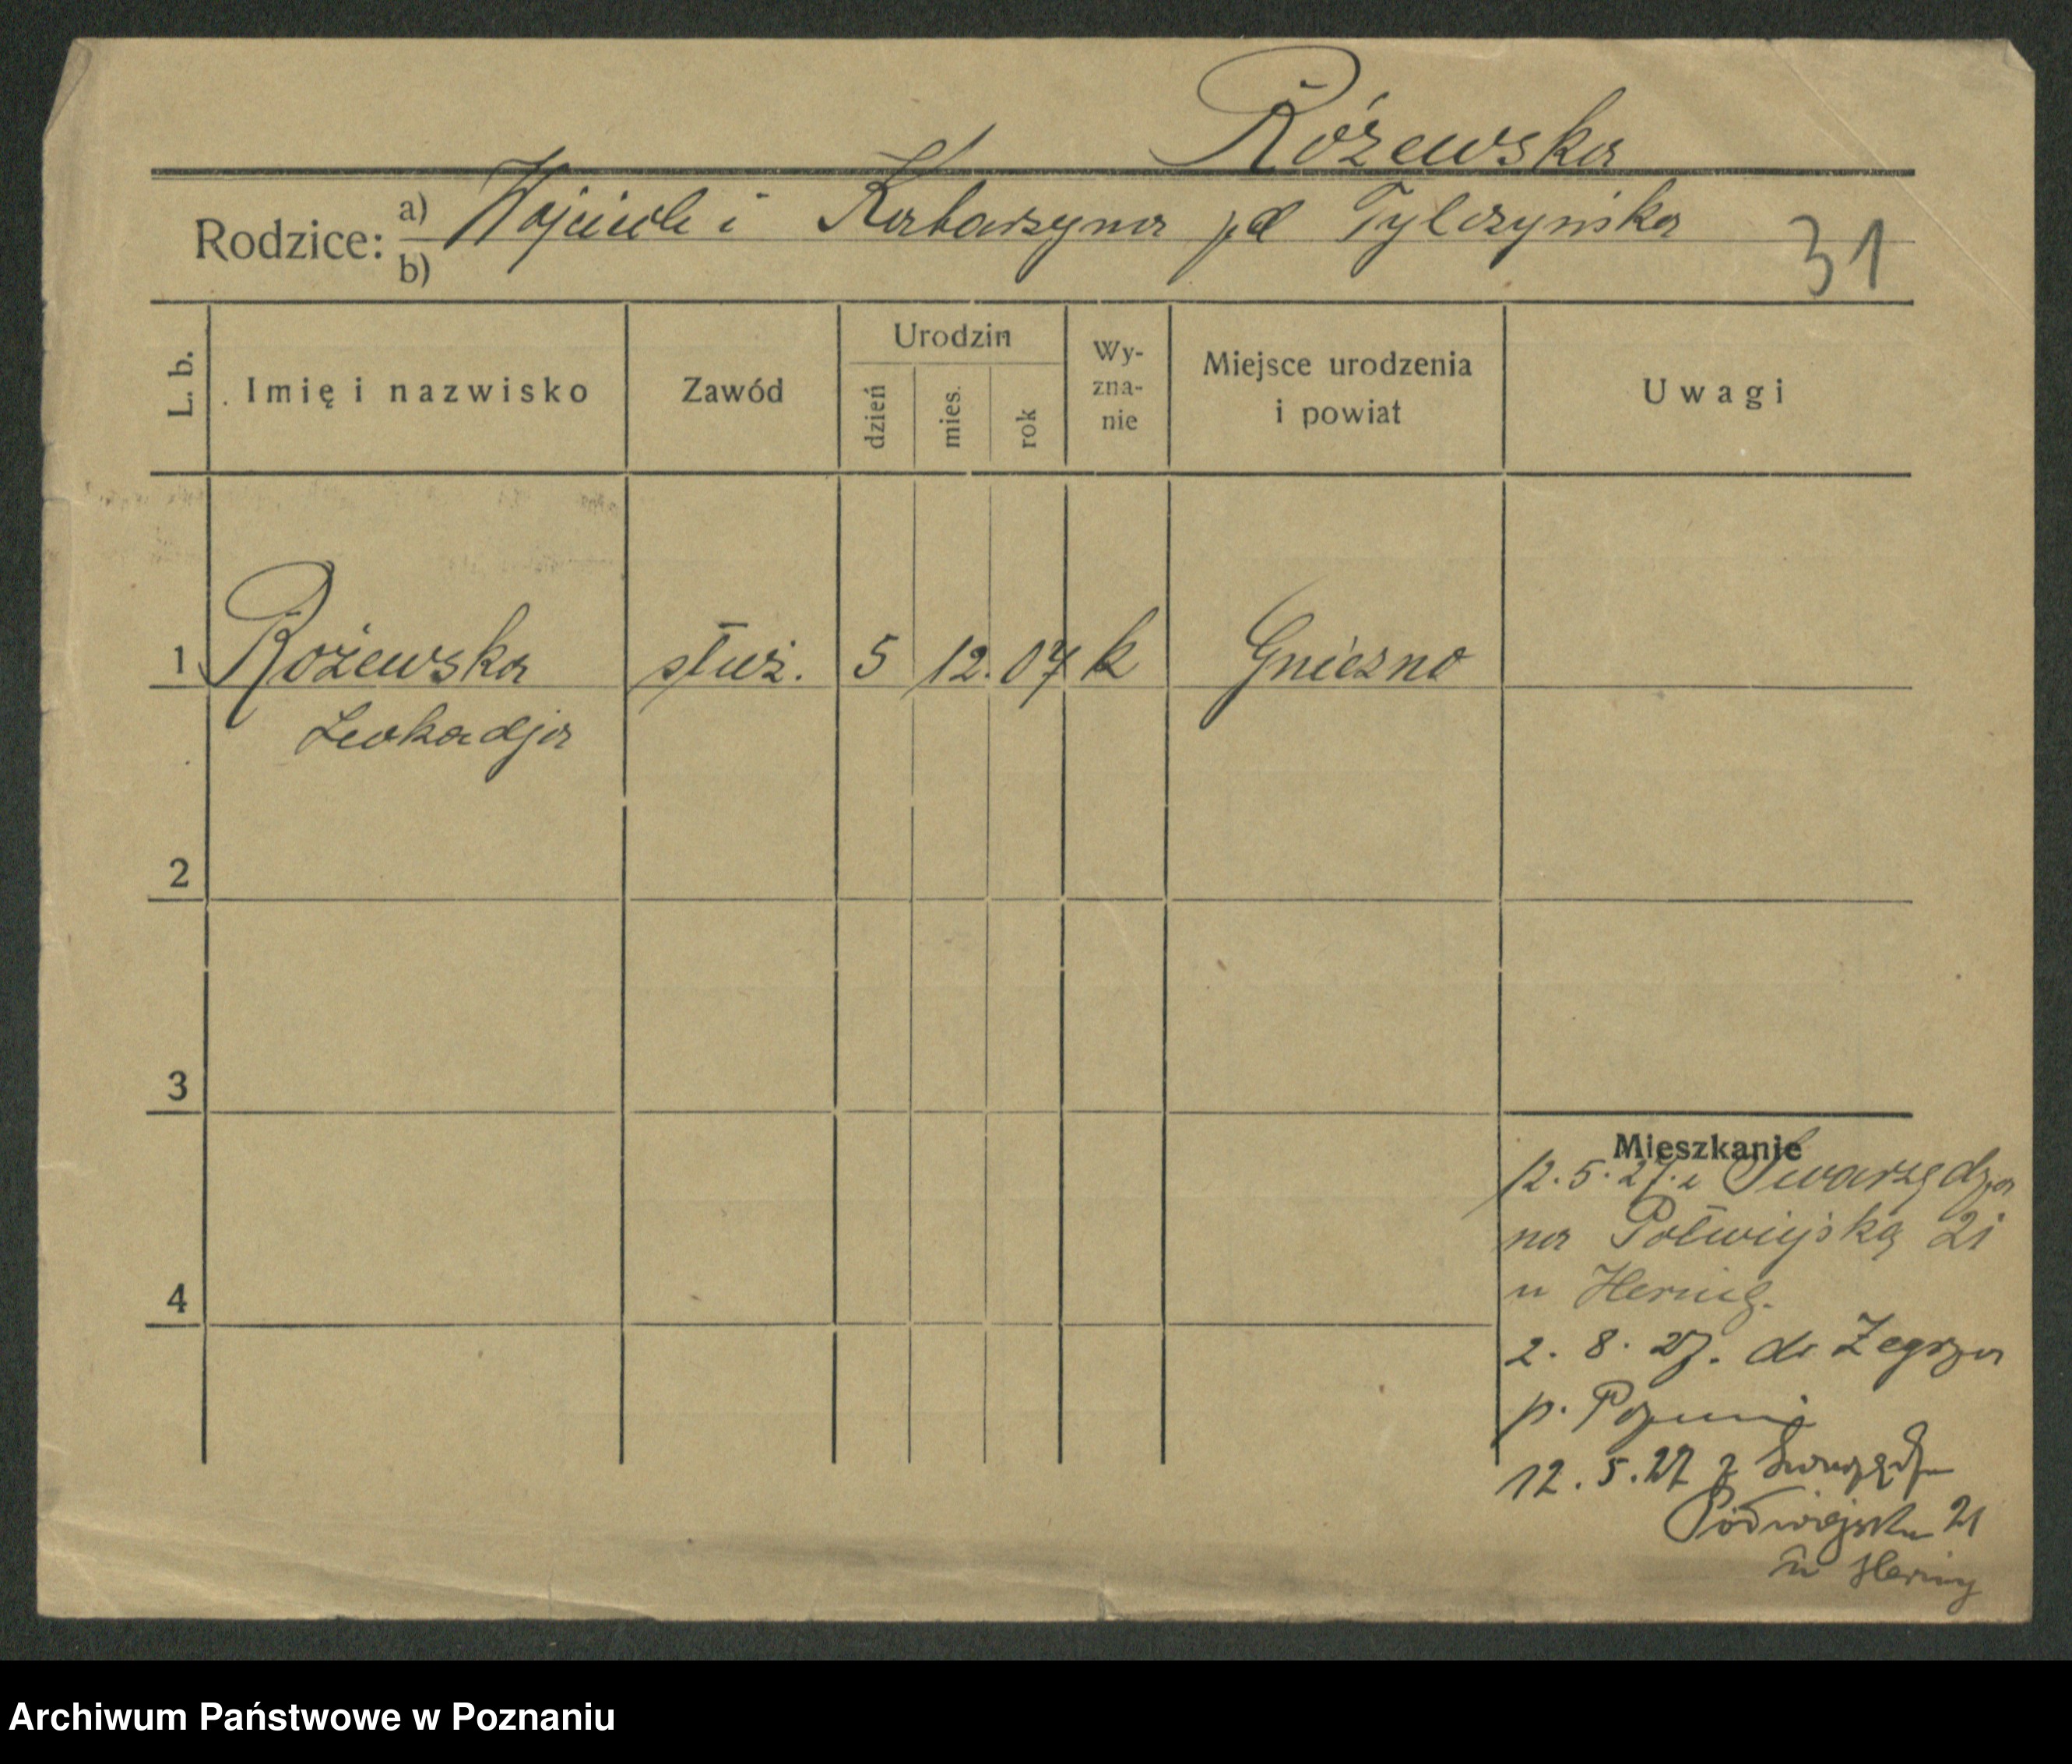 Różewska
Rodzice: a) Wojciech i Katarzyna pd Tylczyńska
b)
31
L. b.
Imię i nazwisko
Zawód
Urodzin
dzień
mies.
rok
Wy-
zna-
nie
Miejsce urodzenia
i powiat
Uwagi
1 Rożewska służ. 5 12. 07 k Gniezno
Leokadja
2
3
4
Mieszkanie
12.5.27. z Swarzędza
na Półwiejską 21
u Hernig.
2. 8. 27. do Zegrza
p.
12.5.27 z Swarzędza
Półwiejska 21
u Hering
Archiwum Państwowe w Poznaniu